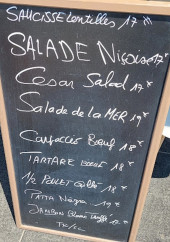 SAUCISSE Lentilles 17 €
SALADE Niçoise 17€
Cesar Salad 17€
Salade de la MER 19€
Carpaccio Boeuf 18€
TARTARE BOEUF 18€
1/2 POULET 18€
PATA Negra 19€
JAMBON Blanc